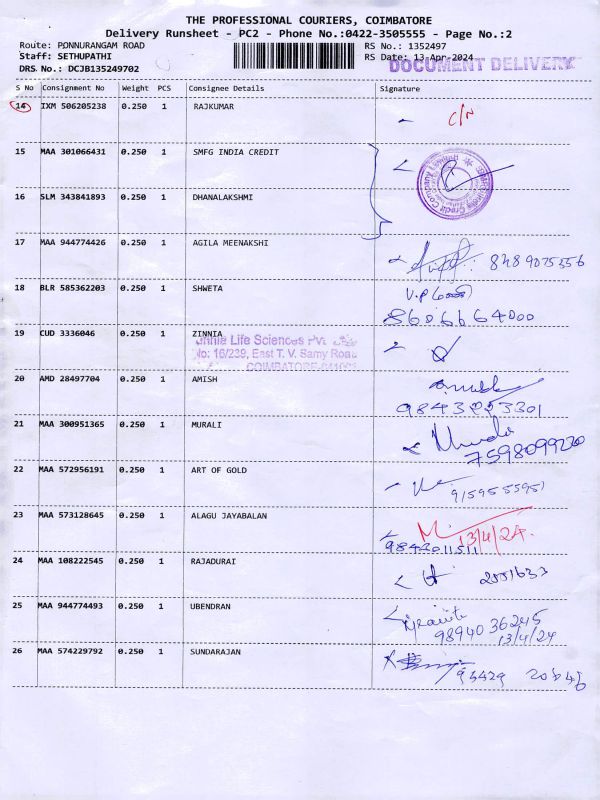 THE PROFESSIONAL COURIERS, COIMBATORE
Delivery Runsheet - PC2 - Phone No.:0422-3505555 - Page No.:2
Route: PONNURANGAM ROAD RS No.: 1352497
Staff: SETHUPATHI RS Date: 13-Apr-2024
DRS No.: DCJB135249702 DOCUMENT DELIVERY
S No Consignment No Weight PCS Consignee Details Signature
14 IXM 506205238 0.250 1 RAJKUMAR C/N
15 MAA 301066431 0.250 1 SMFG INDIA CREDIT
16 SLM 343841893 0.250 1 DHANALAKSHMI
17 MAA 944774426 0.250 1 AGILA MEENAKSHI
8489075556
18 BLR 585362203 0.250 1 SHWETA V.P
8606664000
19 CUD 3336046 0.250 1 ZINNIA
Zinnia Life Sciences Pvt
No: 16/239, East T. V. Samy Road
COIMBATORE
20 AMD 28497704 0.250 1 AMISH
9843223301
21 MAA 300951365 0.250 1 MURALI Murali
7598099220
22 MAA 572956191 0.250 1 ART OF GOLD
9159555951
23 MAA 573128645 0.250 1 ALAGU JAYABALAN 13/4/24
9842011511
24 MAA 108222545 0.250 1 RAJADURAI 2551633
25 MAA 944774493 0.250 1 UBENDRAN
98940 36245
13/4/24
26 MAA 574229792 0.250 1 SUNDARAJAN